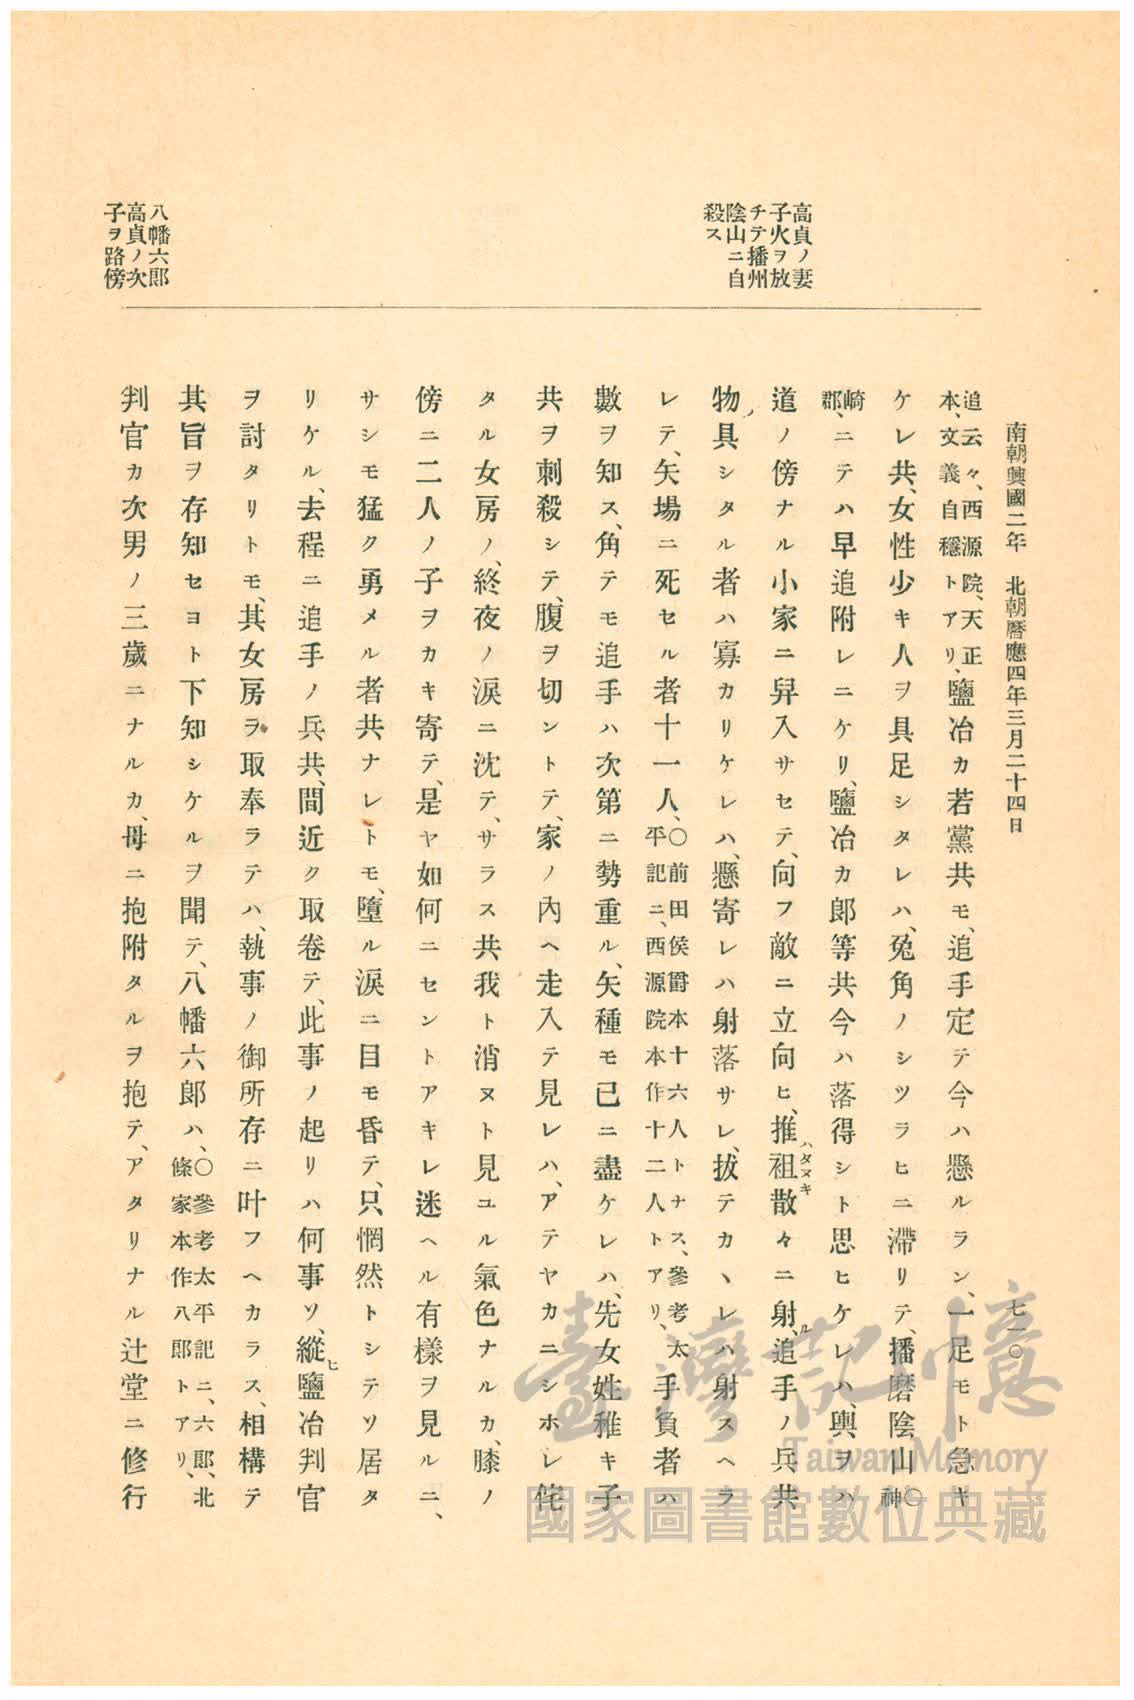 南朝興國二年　北朝曆應四年三月二十四日
七一〇
高貞ノ妻
子火ヲ放
チテ播州
陰山ニ自
殺ス
八幡六郎
高貞ノ次
子ヲ路傍
追云々、西源院、天正
本、文義自穩トアリ、
鹽冶カ若黨共モ、追手定テ今ハ懸ルラン、一足モト急キ
ケレ共、女性少キ人ヲ具足シタレハ、兔角ノシツラヒニ滯リテ、播磨陰山〇神
崎
郡、ニテハ早追附レニケリ、鹽冶カ郎等共今ハ落得シト思ヒケレハ、輿ヲハ
道ノ傍ナル小家ニ舁入サセテ、向フ敵ニ立向ヒ、推祖ハタヌキ散々ニ射ル、追手ノ兵共
物ノ具シタル者ハ寡カリケレハ、懸寄レハ射落サレ、拔テカヽレハ射スヘラ
レテ、矢場ニ死セル者十一人、〇前田侯爵本十六人トナス、參考太
平記ニ、西源院本作十二人トアリ、手負者ハ
數ヲ知ス、角テモ追手ハ次第ニ勢重ル、矢種モ已ニ盡ケレハ、先女姓稚キ子
共ヲ刺殺シテ、腹ヲ切ントテ、家ノ內ヘ走入テ見レハ、アテヤカニシホレ侘
タル女房ノ、終夜ノ淚ニ沈テ、サラス共我ト消ヌト見ユル氣色ナルカ、膝ノ
傍ニ二人ノ子ヲカキ寄テ、是ヤ如何ニセントアキレ迷ヘル有樣ヲ見ルニ、
サシモ猛ク勇メル者共ナレトモ、墮ル淚ニ目モ昏テ、只惘然トシテソ居タ
リケル、去程ニ追手ノ兵共、間近ク取卷テ、此事ノ起リハ何事ソ、縱ヒ鹽冶判官
ヲ討タリトモ、其女房ヲ取奉ラテハ、執事ノ御所存ニ叶フヘカラス、相構テ
其旨ヲ存知セヨト下知シケルヲ聞テ、八幡六郎ハ、〇參考太平記ニ、六郎、北
條家本作八郎トアリ、
判官カ次男ノ三歲ニナルカ、母ニ抱附タルヲ抱テ、アタリナル辻堂ニ修行
臺灣記憶
Taiwan Memory
國家圖書館數位典藏